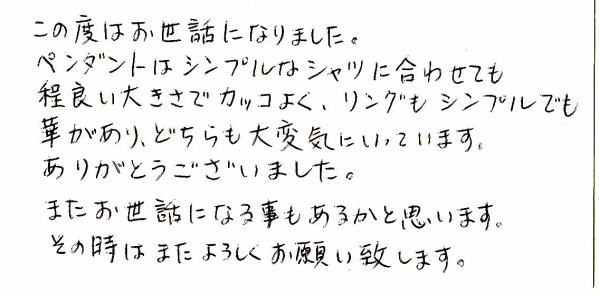 この度はお世話になりました。
ペンダントはシンプルなシャツに合わせても
程良い大きさでカッコよく、リングもシンプルでも
華があり、どちらも大変気にいっています。
ありがとうございました。
またお世話になる事もあるかと思います。
その時はまたよろしくお願い致します。